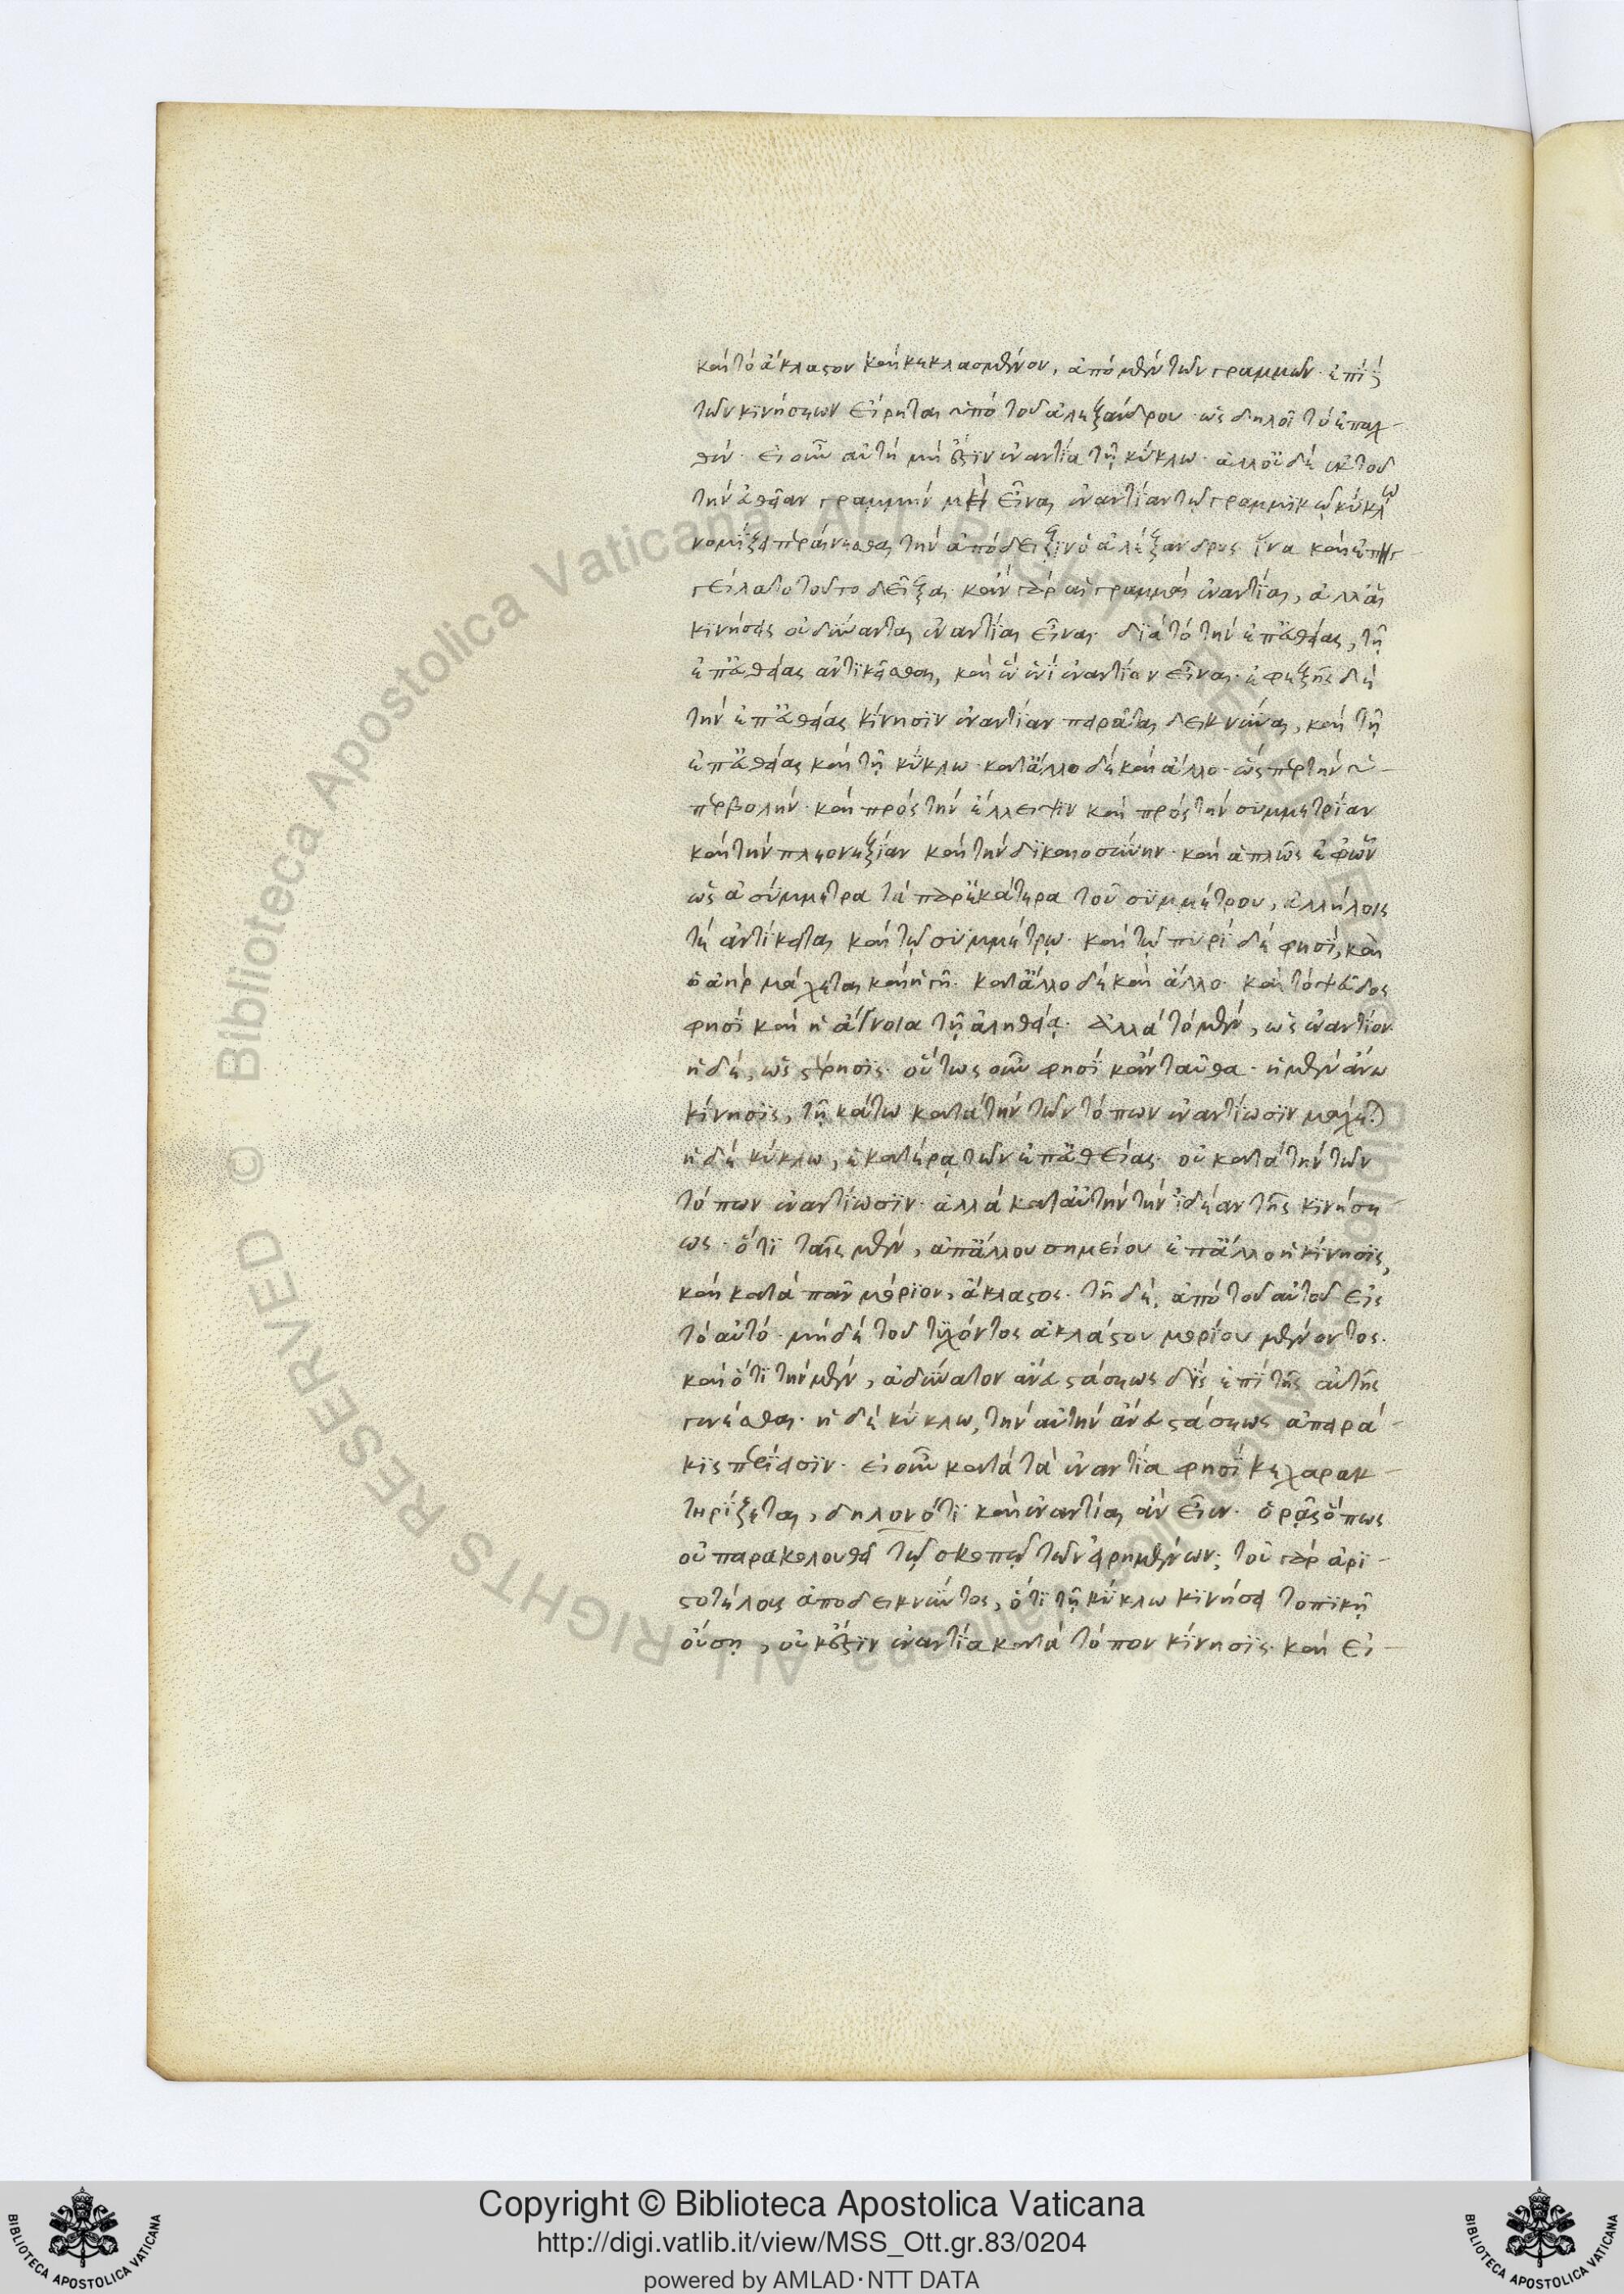 καὶ τὸ ἄκλαστον καὶ κεκλασμένον, ἀπὸ μὲν τῶν γραμμῶν ἐπὶ
τῶν κινήσεων εἴρηται ὑπὸ τοῦ ἀλεξάνδρου· ὡς δηλοῖ τὸ ἐπαχ-
θέν· εἰ οὖν αὐτὴ μή ἐστιν ἐναντία τῇ κύκλω· ἀλλ' οὐδὲ ἐκ τοῦ
τὴν εὐθεῖαν γραμμὴν μὴ εἶναι ἐναντίαν τῷ γραμμικῷ κύκλω
νομίζει περαίνεσθαι τὴν ἀπόδειξιν ὁ ἀλέξανδρος ἵνα καὶ ἐπηγ-
γείλατο τοῦτο δεῖξαι· κἂν γὰρ αἱ γραμμαὶ ἐναντίαι, ἀλλ' αἱ
κινήσεις οὐ δύνανται ἐναντίαι εἶναι· διὰ τὸ τὴν ἐπ' εὐθείας, τῇ
ἐπ' εὐθείας ἀντικεῖσθαι, καὶ ἓν ἑνὶ ἐναντίον εἶναι· ἐφεξῆς δὲ
τὴν ἐπ' εὐθείας κίνησιν ἐναντίαν πειρᾶται δεικνύναι, καὶ τῇ
ἐπ' εὐθείας καὶ τῇ κύκλω· κατ' ἄλλο δὲ καὶ ἄλλο· ὥσπερ τὴν ὑ-
περβολὴν· καὶ πρὸς τὴν ἔλλειψιν καὶ πρὸς τὴν συμμετρίαν
καὶ τὴν πλεονεξίαν καὶ τὴν δικαιοσύνην· καὶ ἁπλῶς ἐφ' ὧν
ὡς ἀσύμμετρα τὰ παρ' ἑκάτερα τοῦ συμμέτρου, ἀλλήλοις
τὲ ἀντίκειται καὶ τῷ συμμέτρω· καὶ τῷ πυρὶ δέ φησι, καὶ
ὁ ἀὴρ μάχεται καὶ ἡ γῆ· κατ' ἄλλο δὲ καὶ ἄλλο· καὶ τὸ ψεῦδος
φησὶ καὶ ἡ ἄγνοια τῇ ἀληθείᾳ· ἀλλὰ τὸ μὲν, ὡς ἐναντίον
ἡ δὲ, ὡς στέρησις· οὕτως οὖν φησὶ κἀνταῦθα· ἡ μὲν ἄνω
κίνησις, τῇ κάτω κατὰ τὴν τῶν τόπων ἐναντίωσιν μάχεται
ἡ δὲ κύκλω, ἑκατέρᾳ τῶν ἐπ' εὐθείας· οὐ κατὰ τὴν τῶν
τόπων ἐναντίωσιν· ἀλλὰ κατ' αὐτὴν τὴν ἰδέαν τῆς κινήσε-
ως· ὅτι ταῖς μὲν, ἀπ' ἄλλου σημείου ἐπ' ἄλλο ἡ κίνησις,
καὶ κατὰ πᾶν μόριον, ἄκλαστος· τῇ δὲ, ἀπὸ τοῦ αὐτοῦ εἰς
τὸ αὐτό· μηδὲ τοῦ τυχόντος ἀκλάστου μορίου μένοντος·
καὶ ὅτι τὴν μὲν, ἀδύνατον ἄνευ στάσεως δὶς ἐπὶ τῆς αὐτῆς
γενέσθαι· ἡ δὲ κύκλω, τὴν αὐτὴν ἄνευ στάσεως ἀπειρά-
κις περίεισιν· εἰ οὖν κατὰ τὰ ἐναντία φησὶ κεχαρακ-
τήρισται, δηλονότι καὶ ἐναντίαι ἂν εἶεν· ὁρᾷς ὅπως
οὐ παρακολουθεῖ τῷ σκοπῷ τῶν εἰρημένων; τοῦ γὰρ ἀρι-
στοτέλους ἀποδεικνύντος, ὅτι τῇ κύκλω κινήσει τοπικῇ
οὔσῃ, οὐκ ἔστιν ἐναντία κατὰ τόπον κίνησις· καὶ εἰ-
Copyright © Biblioteca Apostolica Vaticana
http://digi.vatlib.it/view/MSS_Ott.gr.83/0204
powered by AMLAD·NTT DATA